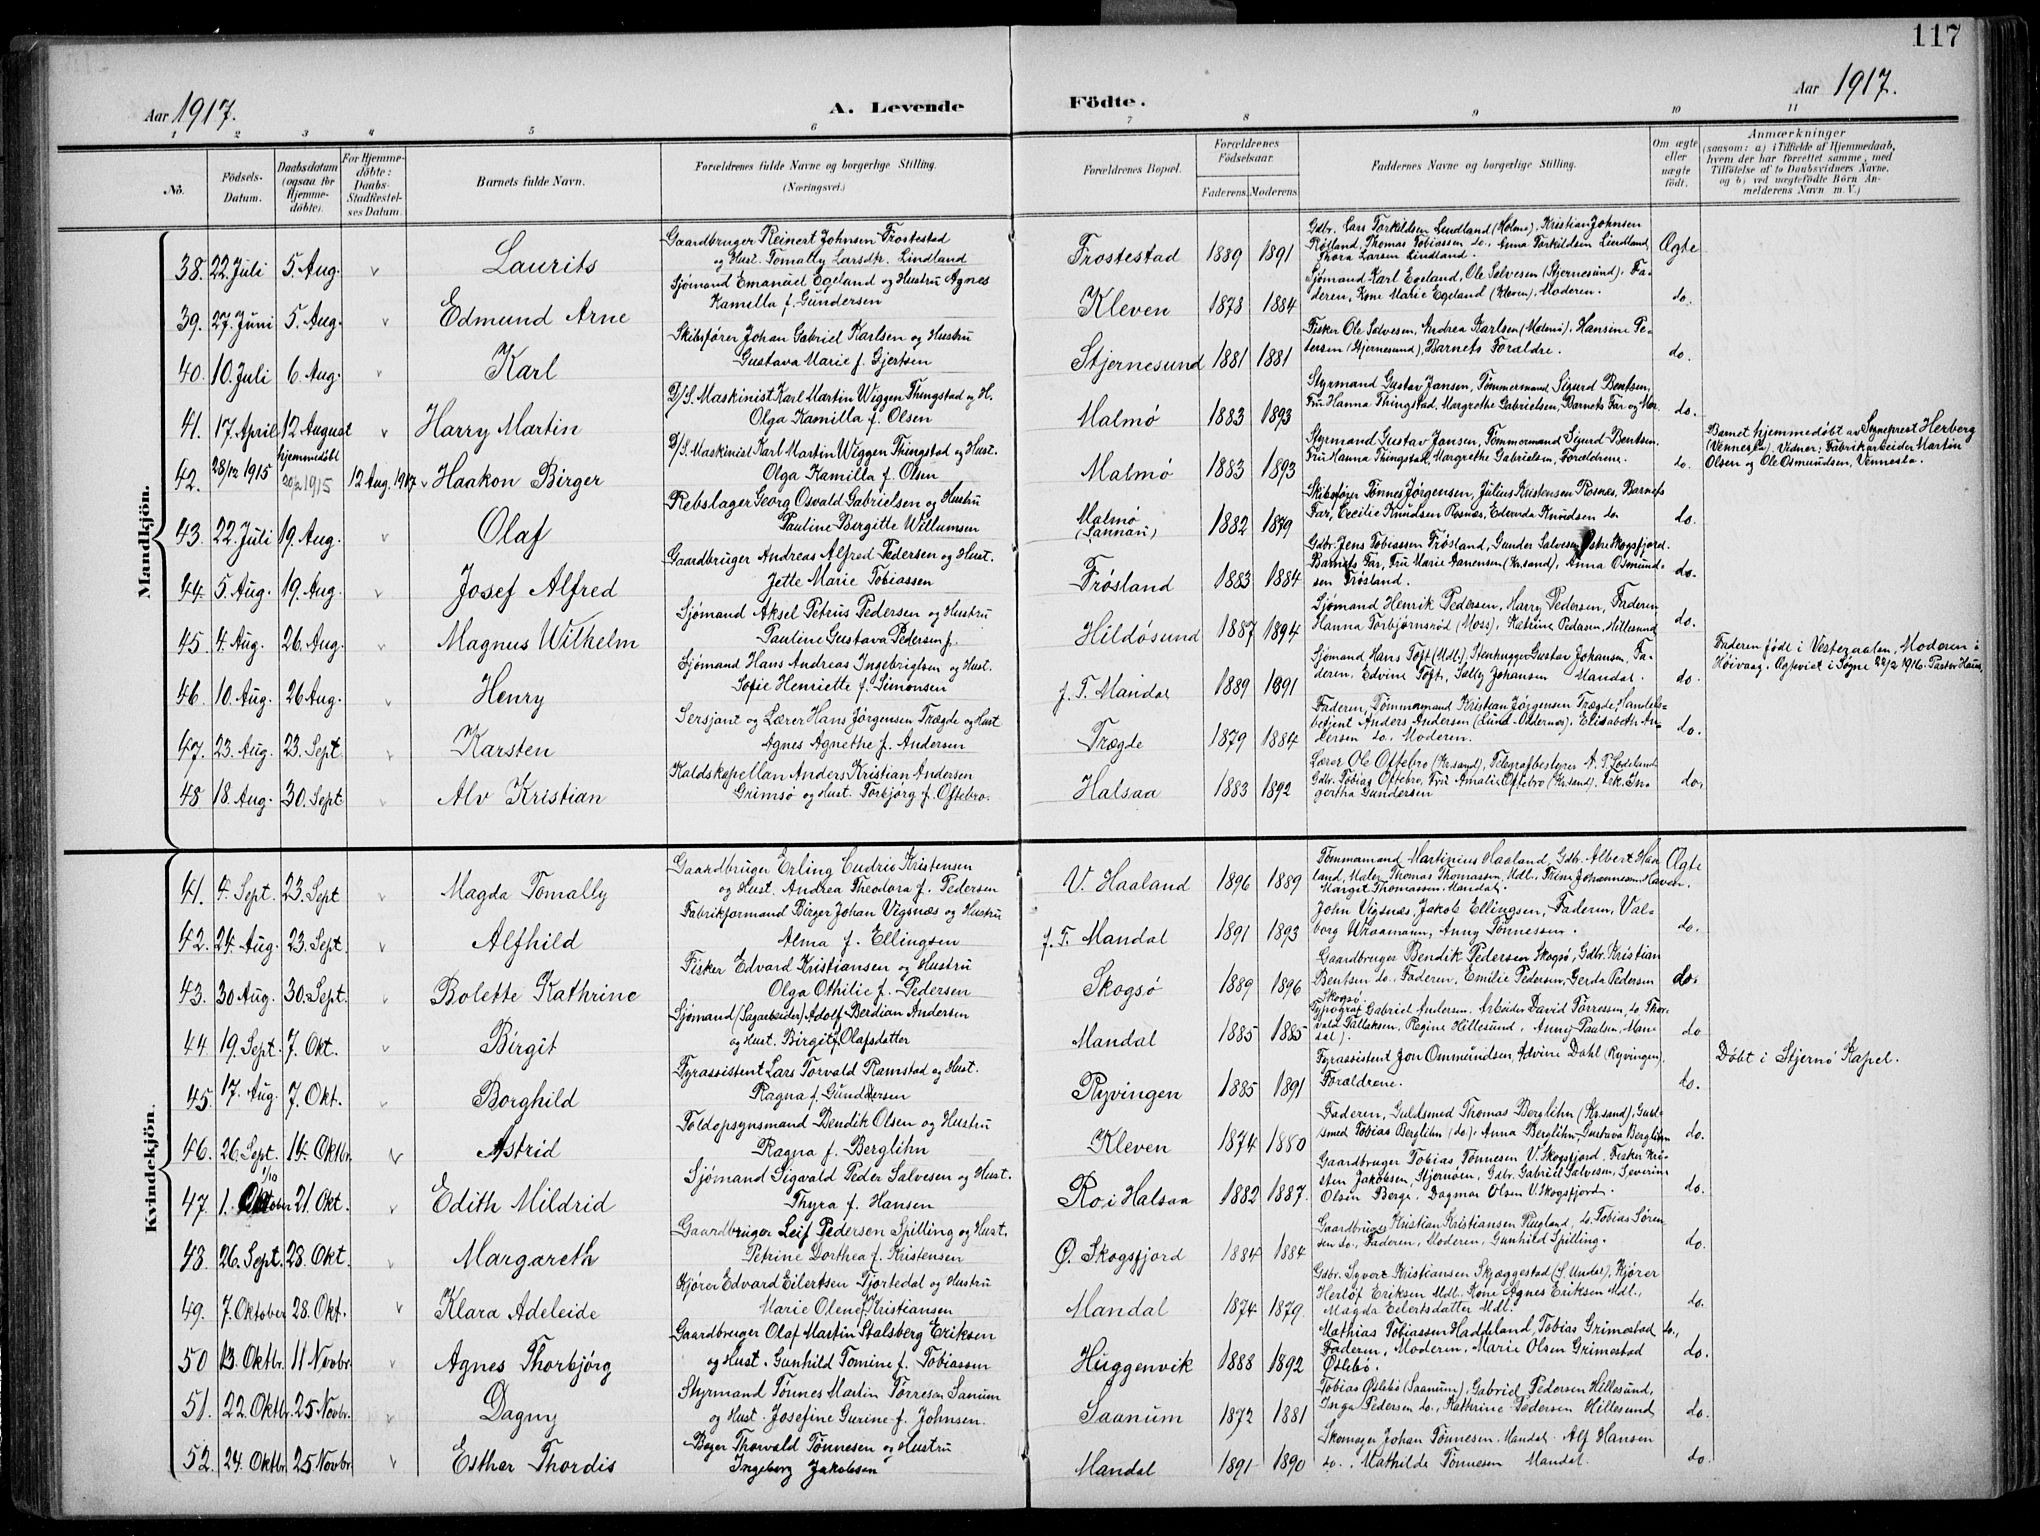 117
Aar 1917.
A. Levende Födte.
Aar 1917.
1 2 3 4 5 6 7 8 9 10 11
No.
Födsels-Datum.
Daabsdatum (ogsaa for Hjemme-döbte).
For Hjemme-döbte: Daabs-Stadfæstel-ses Datum.
Barnets fulde Navn.
Forældrenes fulde Navne og borgerlige Stilling. (Næringsvei.)
Forældrenes Bopæl.
Forældrenes Födselsaar.
Faderens. Moderens.
Faddernes Navne og borgerlige Stilling.
Om ægte eller uægte födt.
Anmærkninger
(saasom: a) i Tilfælde af Hjemmedaab,
hvem der har forrettet samme, med
Tilföielse af to Daabsvidners Navne,
og b) ved uægtefödte Börn An-
melderens Navn m. V.)
Mandkjön.
38. 22. Juli 5. Aug. v Laurits
Gaardbruger Reinert Johnsen Frostestad
og Hust. Tomally Larsdtr. Lindland
Frostestad 1889 1891
Gdbr. Lars Torkildsen Lindland (Holme), Kristian Johnsen
Røiland, Thomas Tobiassen do., Anna Torkildsen Lindland,
Thora Larsen Lindland.
Ægte
39. 27. Juni 5. Aug. v Edmund Arne
Sjømand Emanuel Egeland og Hustru Agnes
Kamilla f. Gundersen
Kleven 1878 1884
Sjømand Karl Egeland, Ole Salvesen (Stjernesund). Fa-
deren, Kone Marie Egeland (Kleven), Moderen.
do.
40. 10. Juli 6. Aug. v Karl
Skibsfører Johan Gabriel Karlsen og Hustru
Gustava Marie f. Gjertsen
Stjernesund 1881 1881
Fisker Ole Salvesen, Andrea Karlsen (Malmø), Hansine Pe-
dersen (Stjernesund), Barnets Forældre.
do.
41. 17. April 12 August v Harry Martin
D/S. Maskinist Karl Martin Wiggen Thingstad og H.
Olga Kamilla f. Olsen
Malmø 1883 1893
Styrmand Gustav Jansen, Tømmermand Sigurd Bentsen,
Fru Hanna Thingstad, Margrethe Gabrielsen, Barnets Far og Mor.
do.
42. 28/12 1915 hjemmedøbt 20/2 1915 12 Aug. 1917 v Haakon Birger
D/S. Maskinist Karl Martin Wiggen Thingstad og Hust.
Olga Kamilla f. Olsen
Malmø 1883 1893
Styrmand Gustav Jansen, Tømmermand Sigurd Bentsen.
Fru Hanna Thingstad, Margrethe Gabrielsen, Forældrene.
do.
Barnet hjemmedøbt av Sogneprest Herberg
(Vennesla). Vidner: Fabrikarbeider Martin
Olsen og Ole Osmundsen, Vennesla.
43. 22. Juli 19. Aug. v Olaf
Rebslager Georg Osvald Gabrielsen og Hustru
Pauline Birgitte Willumsen
Malmø (Sannan) 1882 1879
Skibsfører Tønnes Jørgensen, Julius Kristensen Rosnæs, Barnets
Far, Cecilie Knudsen Rosnæs, Edvarda Knudsen do.
do.
44. 5. Aug. 19. Aug. v Josef Alfred
Gaardbruger Andreas Alfred Pedersen og Hust.
Jette Marie Tobiassen
Frøsland 1883 1884
Gdbr. Jens Tobiassen Frøsland, Gunder Salvesen Østre Skogsfjord.
Barnets Far, Fru Marie Aanensen (Kr.sand), Anna Osmund-
sen Frøsland.
do.
45. 4. Aug. 26. Aug. v Magnus Wilhelm
Sjømand Aksel Petrus Pedersen og Hustru
Pauline Gustava Pedersen f.
Hildøsund 1887 1894
Sjømand Henrik Pedersen, Harry Pedersen, Faderen
Hanna Torbjørnsrød (Moss), Katrine Pedersen, Hillesund
do.
46. 10. Aug. 26. Aug. v Henry
Sjømand Hans Andreas Ingebrigtsen og Hust.
Sofie Henriette f. Simonsen
f. T. Mandal 1889 1891
Sjømand Hans Toft (Mdl.), Stenhugger Gustav Johansen, Fa-
deren, Edvine Toft, Sally Johansen Mandal.
do.
Faderen født i Vesteraalen, Moderen i
Høivaag. Ægteviet i Søgne 22/2 1916. Pastor
47. 23. Aug. 23. Sept v Karsten
Sersjant og Lærer Hans Jørgensen Trægde og Hust
Agnes Agnethe f. Andersen
Trægde 1879 1884
Faderen, Tømmermand Kristian Jørgensen Trægde, Handels-
betjent Anders Andersen (Lund - Oddernes), Elisabeth An-
dersen do. Moderen.
do.
48 18. Aug. 30. Sept v Alv Kristian
Kaldskapellan Anders Kristian Andersen
Grimsø og Hust. Torbjørg f. Oftebro.
Halsaa 1883 1892
Lærer Ole Oftebro (Kr.sand), Telegrafbestyrer A. T. Lodeland.
Gdbr. Tobias Oftebro, Fru Amalie Oftebro (Kr.sand), Frk. In-
gertha Gundersen
do.
Kvindekjön.
41. 4. Sept. 23. Sept v Magda Tomally
Gaardbruger Erling Cudrio Kristensen
og Hust. Andrea Theodora f. Pedersen
V. Haaland 1896 1889
Tømmermand Martinius Haaland, Gdbr. Albert Haa-
land, Maler Thomas Thomassen Mdl., Trine Johannesen Haven.
Margit Thomassen, Mandal.
Ægte
42. 24. Aug. 23. Sept v Alfhild
Fabrikformand Birger Johan Vigsnæs og Hustru
Alma f. Ellingsen
f. T. Mandal 1891 1893
John Vigsnæs, Jakob Ellingsen, Faderen, Val-
borg Wraamann, Anny Tønnessen.
do.
43. 30 Aug. 30. Sept. v Bolette Kathrine
Fisker Edvard Kristiansen og Hustru
Olga Othilie f. Pedersen
Skogsø 1889 1896
Gaardbruger Bendik Pedersen Skogsø, Gdbr. Kristian
Bentsen do. Faderen, Emilie Pedersen, Gerda Pedersen
Skogsø.
do.
44 19. Sept. 7. Okt. v Birgit
Sjømand (Sagarbeider) Adolf Berdian Andersen
og Hust. Birgit f. Olafsdatter
Mandal 1885 1885
Typograf Gabriel Andersen, Arbeider David Tørressen, do. Thor-
vald Tallaksen, Regine Hillesund, Anny Paulsen, Man-
dal).
do
45. 17. Aug. 7. Okt. v Borghild
Fyrassistent Lars Torvald Ramstad og Hust.
Ragna f. Gundersen
Ryvingen 1885 1891
Fyrassistent Jon Ommundsen, Advine Dahl (Ryvingen).
Forældrene.
do.
Døbt i Stjernø Kapel.
46. 26. Sept. 14. Oktbr. v Astrid
Toldopsynsmand Bendik Olsen og Hustru
Ragna f. Berglihn
Kleven 1874 1880
Faderen, Guldsmed Thomas Berglihn (Kr.sand), Guld-
smed Tobias Berglihn (do.), Anna Berglihn, Gustava Berglihn
do.
47. 1. Oktober 1/10 21. Okt. v Edith Mildrid
Sjømand Sigvald Peder Salvesen og Hust.
Thyra f. Hansen
Ro i Halsaa 1882 1887.
Gaardbruger Tobias Tønnesen V. Skogsfjord. Fisker Kri-
sten Jakobsen, Stjernøen, Gdbr. Gabriel Salvesen, Severin
Olsen Berge, Dagmar Olsen V. Skogsfjord.
do.
48. 26. Sept. 28. Okt. v Margareth
Gaardbruger Leif Pedersen Spilling og Hust.
Petrine Dorthea f. Kristensen
Ø. Skogsfjord 1884 1884
Gaardbruger Kristian Kristiansen Rugland, do. Tobias Søren-
sen do., Faderen, Moderen, Gunhild Spilling.
do.
49. 7. Oktober 28. Okt. v Klara Adeleide
Kjører Edvard Eilertsen Fjortedal og Hustru
Marie Olene f. Kristiansen
Mandal 1874 1879
Gdbr. Syvert Kristiansen Skjæggestad (S. Undal), Kjører
Herlof Eriksen Mdl. Kone Agnes Eriksen Mdl.,
Magda Eilertsdatter Mdl.
do.
50 13. Oktbr. 11 Novbr. v Agnes Thorbjørg
Gaardbruger Olaf Martin Stalsberg Eriksen
og Hust. Gunhild Tomine f. Tobiassen
Huggenvik 1888 1892
Mathias Tobiassen Haddeland, Tobias Grimestad do.,
Faderen, Moderen, Marie Olsen Grimestad
Øslebø.
do.
51. 22. Oktbr. 25 Novbr. v Dagny
Styrmand Tønnes Martin Tørresen Sanum
og Hust. Josefine Gurine f. Johnsen.
Saanum 1872 1881
Tobias Øslebø (Saanum), Gabriel Pedersen Hillesund,
Inga Pedersen do., Kathrine Pedersen Hillesund
do.
52. 24. Oktbr. 25 Novbr. v Esther Thordis
Bager Thorvald Tønnesen og Hustru
Ingeborg Jakobsen
Mandal 1891 1890
Skomager Johan Tønnesen, Mandal. Alf Hansen
do., Mathilde Tønnesen Mandal.
do.